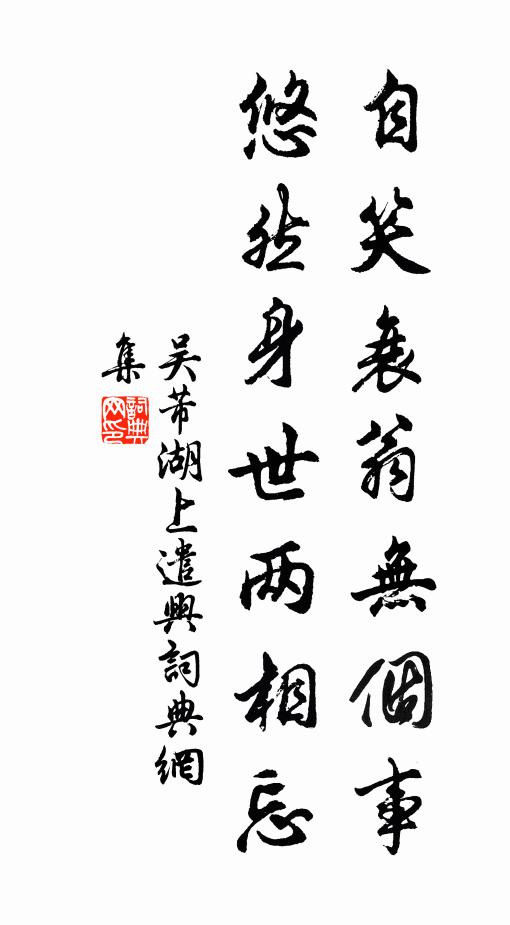 自笑衰翁無個事
悠然身世两相忘
吴芾湖上遣興詞典網
集
詞典網印